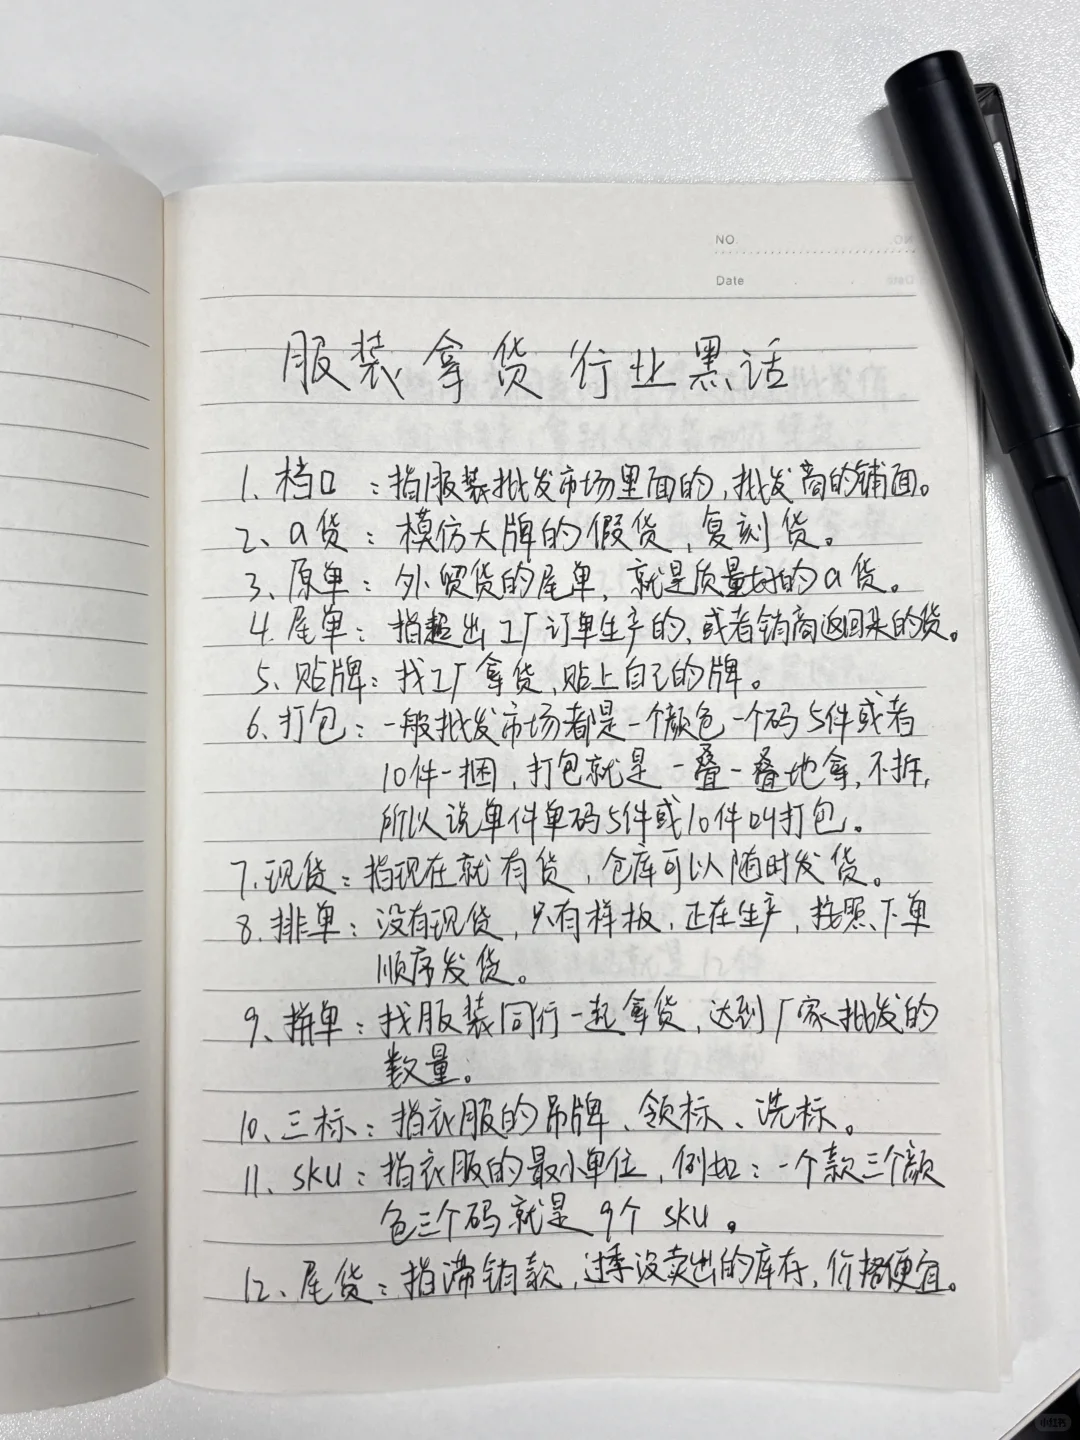 NO.
Date
服装拿货行业黑话
1、档口：指服装批发市场里面的，批发商的铺面。
2、a货：模仿大牌的假货，复刻货。
3、原单：外贸货的尾单，就是质量好的a货。
4、尾单：指超出工厂订单生产的，或者销商返回来的货。
5、贴牌：找工厂拿货，贴上自己的牌。
6、打包：一般批发市场都是一个颜色一个码5件或者
10件一捆，打包就是一叠一叠地拿，不拆，
所以说单件单码5件或10件叫打包。
7、现货：指现在就有货，仓库可以随时发货。
8、排单：没有现货，只有样板，正在生产，按照下单
顺序发货。
9、拼单：找服装同行一起拿货，达到厂家批发的
数量。
10、三标：指衣服的吊牌、领标、洗标。
11、sku：指衣服的最小单位，例如：一个款三个颜
色三个码就是9个sku。
12、尾货：指滞销款，过季没卖出的库存，价格便宜。
小红书